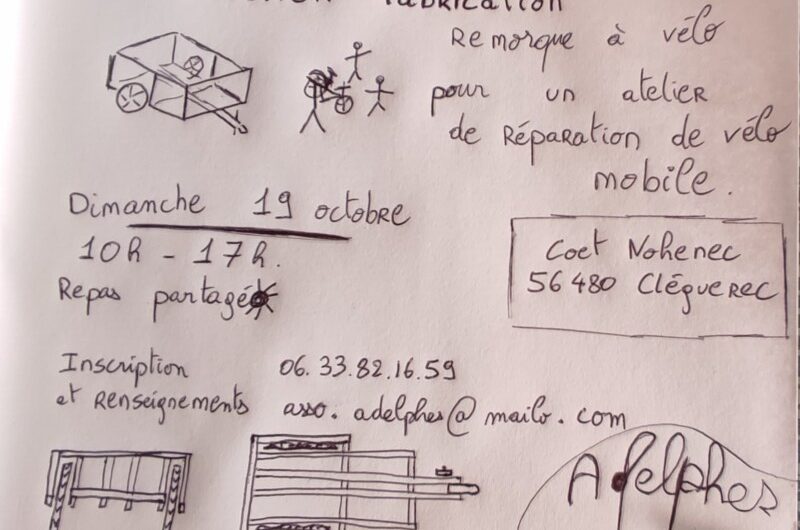 fabrication
Remorque à vélo
pour un atelier
de Réparation de vélo
mobile.
Dimanche 19 octobre
10h - 17h.
Repas partagé
Coet Nohenec
56 480 Cléguerec
Inscription 06. 33. 82. 16. 59
et Renseignements asso. adelphes@mailo.com
Adelphes